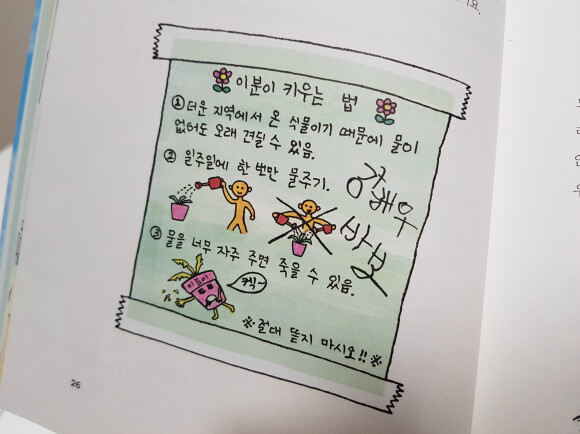 이분이 키우는 법
① 더운 지역에서 온 식물이기 때문에 물이
없어도 오래 견딜 수 있음.
② 일주일에 한 번만 물주기.
강배우
바보
③ 물을 너무 자주 주면 죽을 수 있음.
이분이
켁~
※절대 뜯지 마시오!!※
26